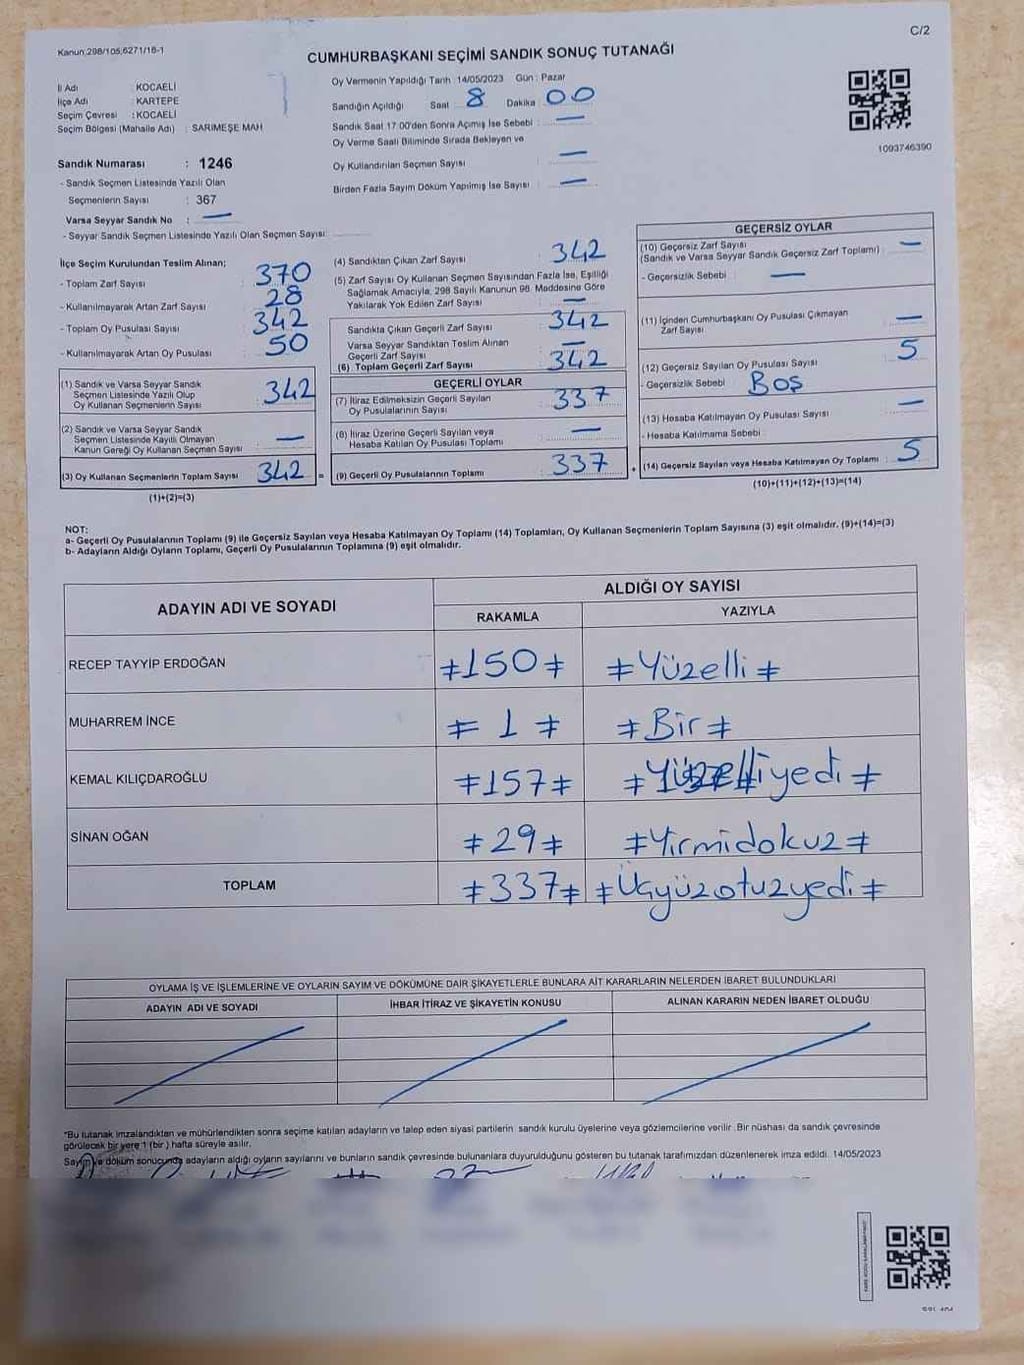 Kanun;298/105;6271/16-1
C/2
CUMHURBAŞKANI SEÇİMİ SANDIK SONUÇ TUTANAĞI
İl Adı : KOCAELİ
İlçe Adı : KARTEPE
Seçim Çevresi : KOCAELİ
Seçim Bölgesi (Mahalle Adı) : SARIMEŞE MAH
Sandık Numarası : 1246
- Sandık Seçmen Listesinde Yazılı Olan
Seçmenlerin Sayısı : 367
Varsa Seyyar Sandık No : —
- Seyyar Sandık Seçmen Listesinde Yazılı Olan Seçmen Sayısı:
Oy Vermenin Yapıldığı Tarih 14/05/2023 Gün : Pazar
Sandığın Açıldığı Saat 8 Dakika 00
Sandık Saat 17:00'den Sonra Açılmış İse Sebebi : —
Oy Verme Saati Bitiminde Sırada Bekleyen ve
Oy Kullandırılan Seçmen Sayısı : —
Birden Fazla Sayım Döküm Yapılmış İse Sayısı : —
1093746390
İlçe Seçim Kurulundan Teslim Alınan;
- Toplam Zarf Sayısı : 370
- Kullanılmayarak Artan Zarf Sayısı : 28
- Toplam Oy Pusulası Sayısı : 342
- Kullanılmayarak Artan Oy Pusulası : 50
(1) Sandık ve Varsa Seyyar Sandık
Seçmen Listesinde Yazılı Olup
Oy Kullanan Seçmenlerin Sayısı : 342
(2) Sandık ve Varsa Seyyar Sandık
Seçmen Listesinde Kayıtlı Olmayan
Kanun Gereği Oy Kullanan Seçmen Sayısı : —
(3) Oy Kullanan Seçmenlerin Toplam Sayısı : 342 =
(1)+(2)=(3)
(4) Sandıktan Çıkan Zarf Sayısı : 342
(5) Zarf Sayısı Oy Kullanan Seçmen Sayısından Fazla İse, Eşitliği
Sağlamak Amacıyla, 298 Sayılı Kanunun 98. Maddesine Göre
Yakılarak Yok Edilen Zarf Sayısı : —
Sandıkta Çıkan Geçerli Zarf Sayısı : 342
Varsa Seyyar Sandıktan Teslim Alınan
Geçerli Zarf Sayısı : —
(6) Toplam Geçerli Zarf Sayısı : 342
GEÇERLİ OYLAR
(7) İtiraz Edilmeksizin Geçerli Sayılan
Oy Pusulalarının Sayısı : 337
(8) İtiraz Üzerine Geçerli Sayılan veya
Hesaba Katılan Oy Pusulası Toplamı : —
(9) Geçerli Oy Pusulalarının Toplamı : 337 +
GEÇERSİZ OYLAR
(10) Geçersiz Zarf Sayısı : —
(Sandık ve Varsa Seyyar Sandık Geçersiz Zarf Toplamı)
- Geçersizlik Sebebi : —
(11) İçinden Cumhurbaşkanı Oy Pusulası Çıkmayan
Zarf Sayısı : —
(12) Geçersiz Sayılan Oy Pusulası Sayısı : 5
- Geçersizlik Sebebi : BOŞ
(13) Hesaba Katılmayan Oy Pusulası Sayısı : —
- Hesaba Katılmama Sebebi :
(14) Geçersiz Sayılan veya Hesaba Katılmayan Oy Toplamı : 5
(10)+(11)+(12)+(13)=(14)
NOT:
a- Geçerli Oy Pusulalarının Toplamı (9) ile Geçersiz Sayılan veya Hesaba Katılmayan Oy Toplamı (14) Toplamları, Oy Kullanan Seçmenlerin Toplam Sayısına (3) eşit olmalıdır. (9)+(14)=(3)
b- Adayların Aldığı Oyların Toplamı, Geçerli Oy Pusulalarının Toplamına (9) eşit olmalıdır.
ADAYIN ADI VE SOYADI
ALDIĞI OY SAYISI
RAKAMLA YAZIYLA
RECEP TAYYİP ERDOĞAN ≠150≠ ≠Yüzelli≠
MUHARREM İNCE ≠1≠ ≠Bir≠
KEMAL KILIÇDAROĞLU ≠157≠ ≠Yüzelliyedi≠
SİNAN OĞAN ≠29≠ ≠Yirmidokuz≠
TOPLAM ≠337≠ ≠Üçyüzotuzyedi≠
OYLAMA İŞ VE İŞLEMLERİNE VE OYLARIN SAYIM VE DÖKÜMÜNE DAİR ŞİKAYETLERLE BUNLARA AİT KARARLARIN NELERDEN İBARET BULUNDUKLARI
ADAYIN ADI VE SOYADI İHBAR İTİRAZ VE ŞİKAYETİN KONUSU ALINAN KARARIN NEDEN İBARET OLDUĞU
*Bu tutanak imzalandıktan ve mühürlendikten sonra seçime katılan adayların ve talep eden siyasi partilerin sandık kurulu üyelerine veya gözlemcilerine verilir. Bir nüshası da sandık çevresinde
görülecek bir yere 1 (bir) hafta süreyle asılır.
Sayım ve döküm sonucunda adayların aldığı oyların sayılarını ve bunların sandık çevresinde bulunanlara duyurulduğunu gösteren bu tutanak tarafımızdan düzenlenerek imza edildi. 14/05/2023